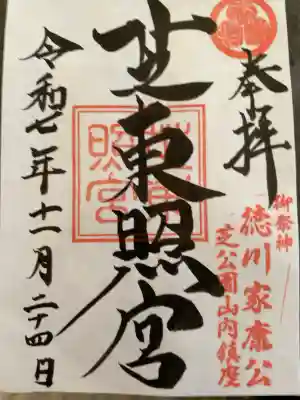 奉拝
御祭神
徳川家康公
芝公園山内鎮座
芝東照宮
令和七年十一月二十四日